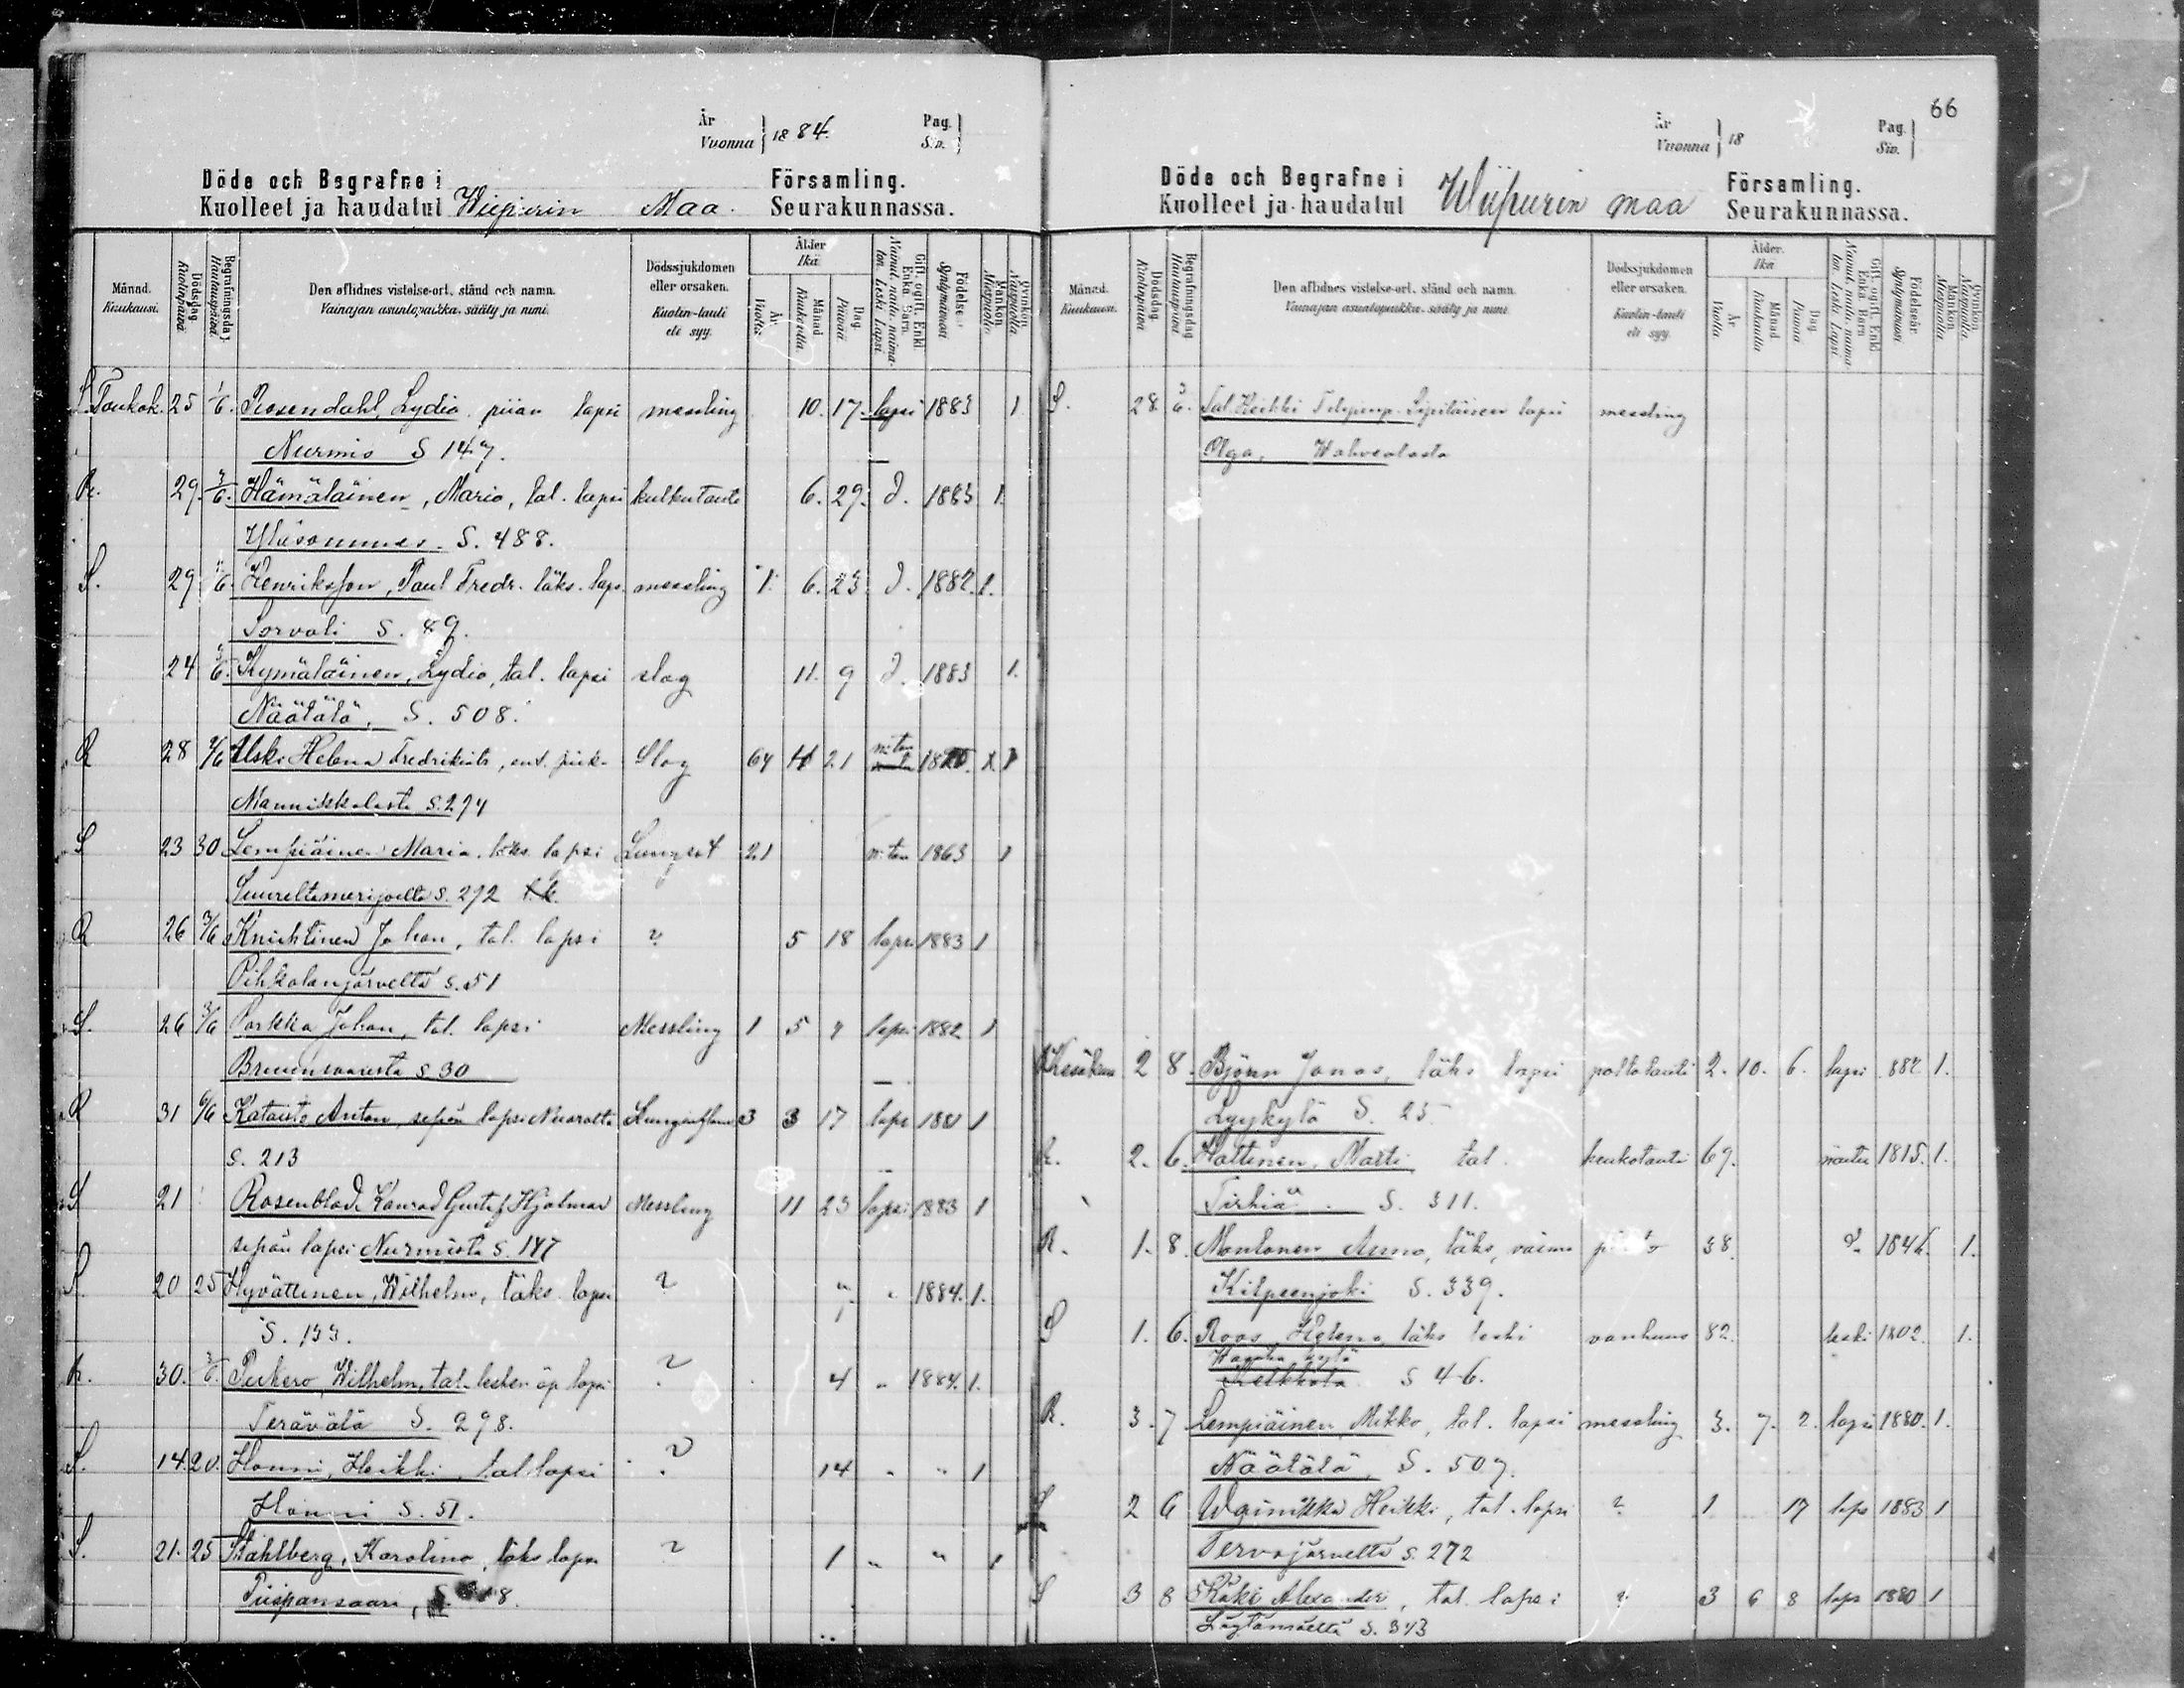 År
Vuonna 1884.
Pag.
Siv.
Döde och Begrafne i Församling.
Kuolleet ja haudatut Wiipurin Maa Seurakunnassa.
Månad. Kuukausi.
Dödsdag. Kuolinpäivä.
Begrafningsdag. Hautauspäivä.
Den aflidnes vistelse-ort, stånd och namn.
Vainajan asuntopaikka, sääty ja nimi.
Dödssjukdomen eller orsaken.
Kuolin-tauti eli syy.
Ålder Ikä
År Vuotta. Månad Kuukautta. Dag. Päivää
Gift, ogift, Enkl. Barn
Födelseår Syntymävuosi
Mankön. Miespuolia.
Qvinkön. Naispuolia.
S. Toukok. 25 1/6. Rosendahl, Lydia, piian lapsi messling 10. 17. lapsi 1883 1.
Nurmis S 147.
R. 29. 3/6. Hämäläinen, Maria, tal. lapsi kulkutauti 6. 29. d. 1883 1.
Yläsommes. S. 488.
S. 29 /6. Henriksson, Paul Fredr. läks. laps. messling 1. 6. 23 d. 1882. 1.
Sorvali S. 89.
24 3/6. Kymäläinen, Lydia, tal. lapsi slag 11. 9 d. 1883 1.
Näätälä, S. 508.
R 28 /6 Helena Fredrikint. Slag 64 21 n:ton 1
Mannikkalasta S. 274
S 23 30 Lempiäinen Maria. läks. lapsi Lungsot 21 n:ton 1863 1
Suureltamerijoelta S. 272
R 26 3/6 Knichtinen Johan, tal. lapsi ? 5 18 lapsi 1883 1
Pihkalanjärveltä S. 51
S. 26 3/6 Parkka Johan, tal. lapsi Messling 1 5 7 lapsi 1882 1
S. 30
R 31 6/6 Kataisto Anton, sepän lapsi Nuoralta 3 3 17 laps 1881 1
S. 213
S 21 Rosenblad Konrad Gustaf Hjalmar Messling 11 23 lapsi 1883 1
sepän lapsi Nurmista S. 147
S. 20 25 Hyvättinen, Wilhelm, läks lapsi ? " " 1884. 1.
S. 133.
R. 30. 3/6. Wilhelm, tal. lesken äp lapsi ? 4 " 1884. 1.
Terävälä S. 298.
S. 14. 20. Hanni, Heikki, tal lapsi ? 14 " " 1
Hanni S. 51.
S. 21. 25 Stahlberg, Karolina, läks lapsi ? 1 " " 1
Piispansaari, 8.
66
År
Vuonna 18
Pag.
Siv.
Döde och Begrafne i Församling.
Kuolleet ja haudatut Wiipurin maa Seurakunnassa.
Månad. Kuukausi.
Dödsdag. Kuolinpäivä
Begrafningsdag Hautauspäivä
Den aflidnes vistelse-ort, stånd och namn.
Vainajan asuntopaikka, sääty ja nimi
Dödssjukdomen eller orsaken.
Kuolin-tauti eli syy
Ålder. Ikä
År Vuotta Månad Kuukautta Dag Päivää
Gift, ogift, Enkl. Barn
Födelseår. Syntymävuosi
Mankön. Miespuolia
Qvinkön. Naispuolia.
S. 28. 3/6. Tal. Heikki lapsi messling
Olga, Wahvialasta
Kesäkuu 2 8. Björn Jonas, läks lapsi polttotauti 2. 10. 6. lapsi 882 1.
Lyykylä S. 25
R. 2. 6. Hattinen, Matti tal. keukotauti 69. naitu 1815. 1.
Tirhiä S. 311.
R. 1. 8. Montonen Anna, läks, vaimo 38. d. 1846. 1.
Kilpeenjoki S. 339.
S 1. 6. Roos Helena, läks leski vanhuus 82. leski 1802. 1.
S 46.
R. 3. 7 Lempiäinen Mikko, tal. lapsi messling 3. 7. 2. lapsi 1880. 1.
Näätälä, S. 507.
S 2 6 Wainikka Heikki, tal. lapsi ? 1 17 laps 1883 1
Tervajärveltä S. 272
S 3 8 Räki Alexander, tal. lapsi ? 3 6 8 laps 1880 1
S. 343